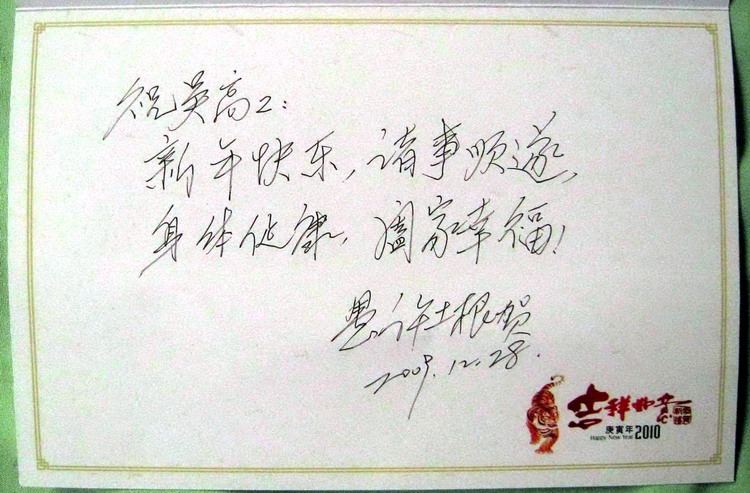 祝吴高工：
新年快乐，诸事顺遂，
身体健康，阖家幸福！
愚许土根贺
2009.12.28.
吉祥如意
庚寅年 2010
Happy New Year